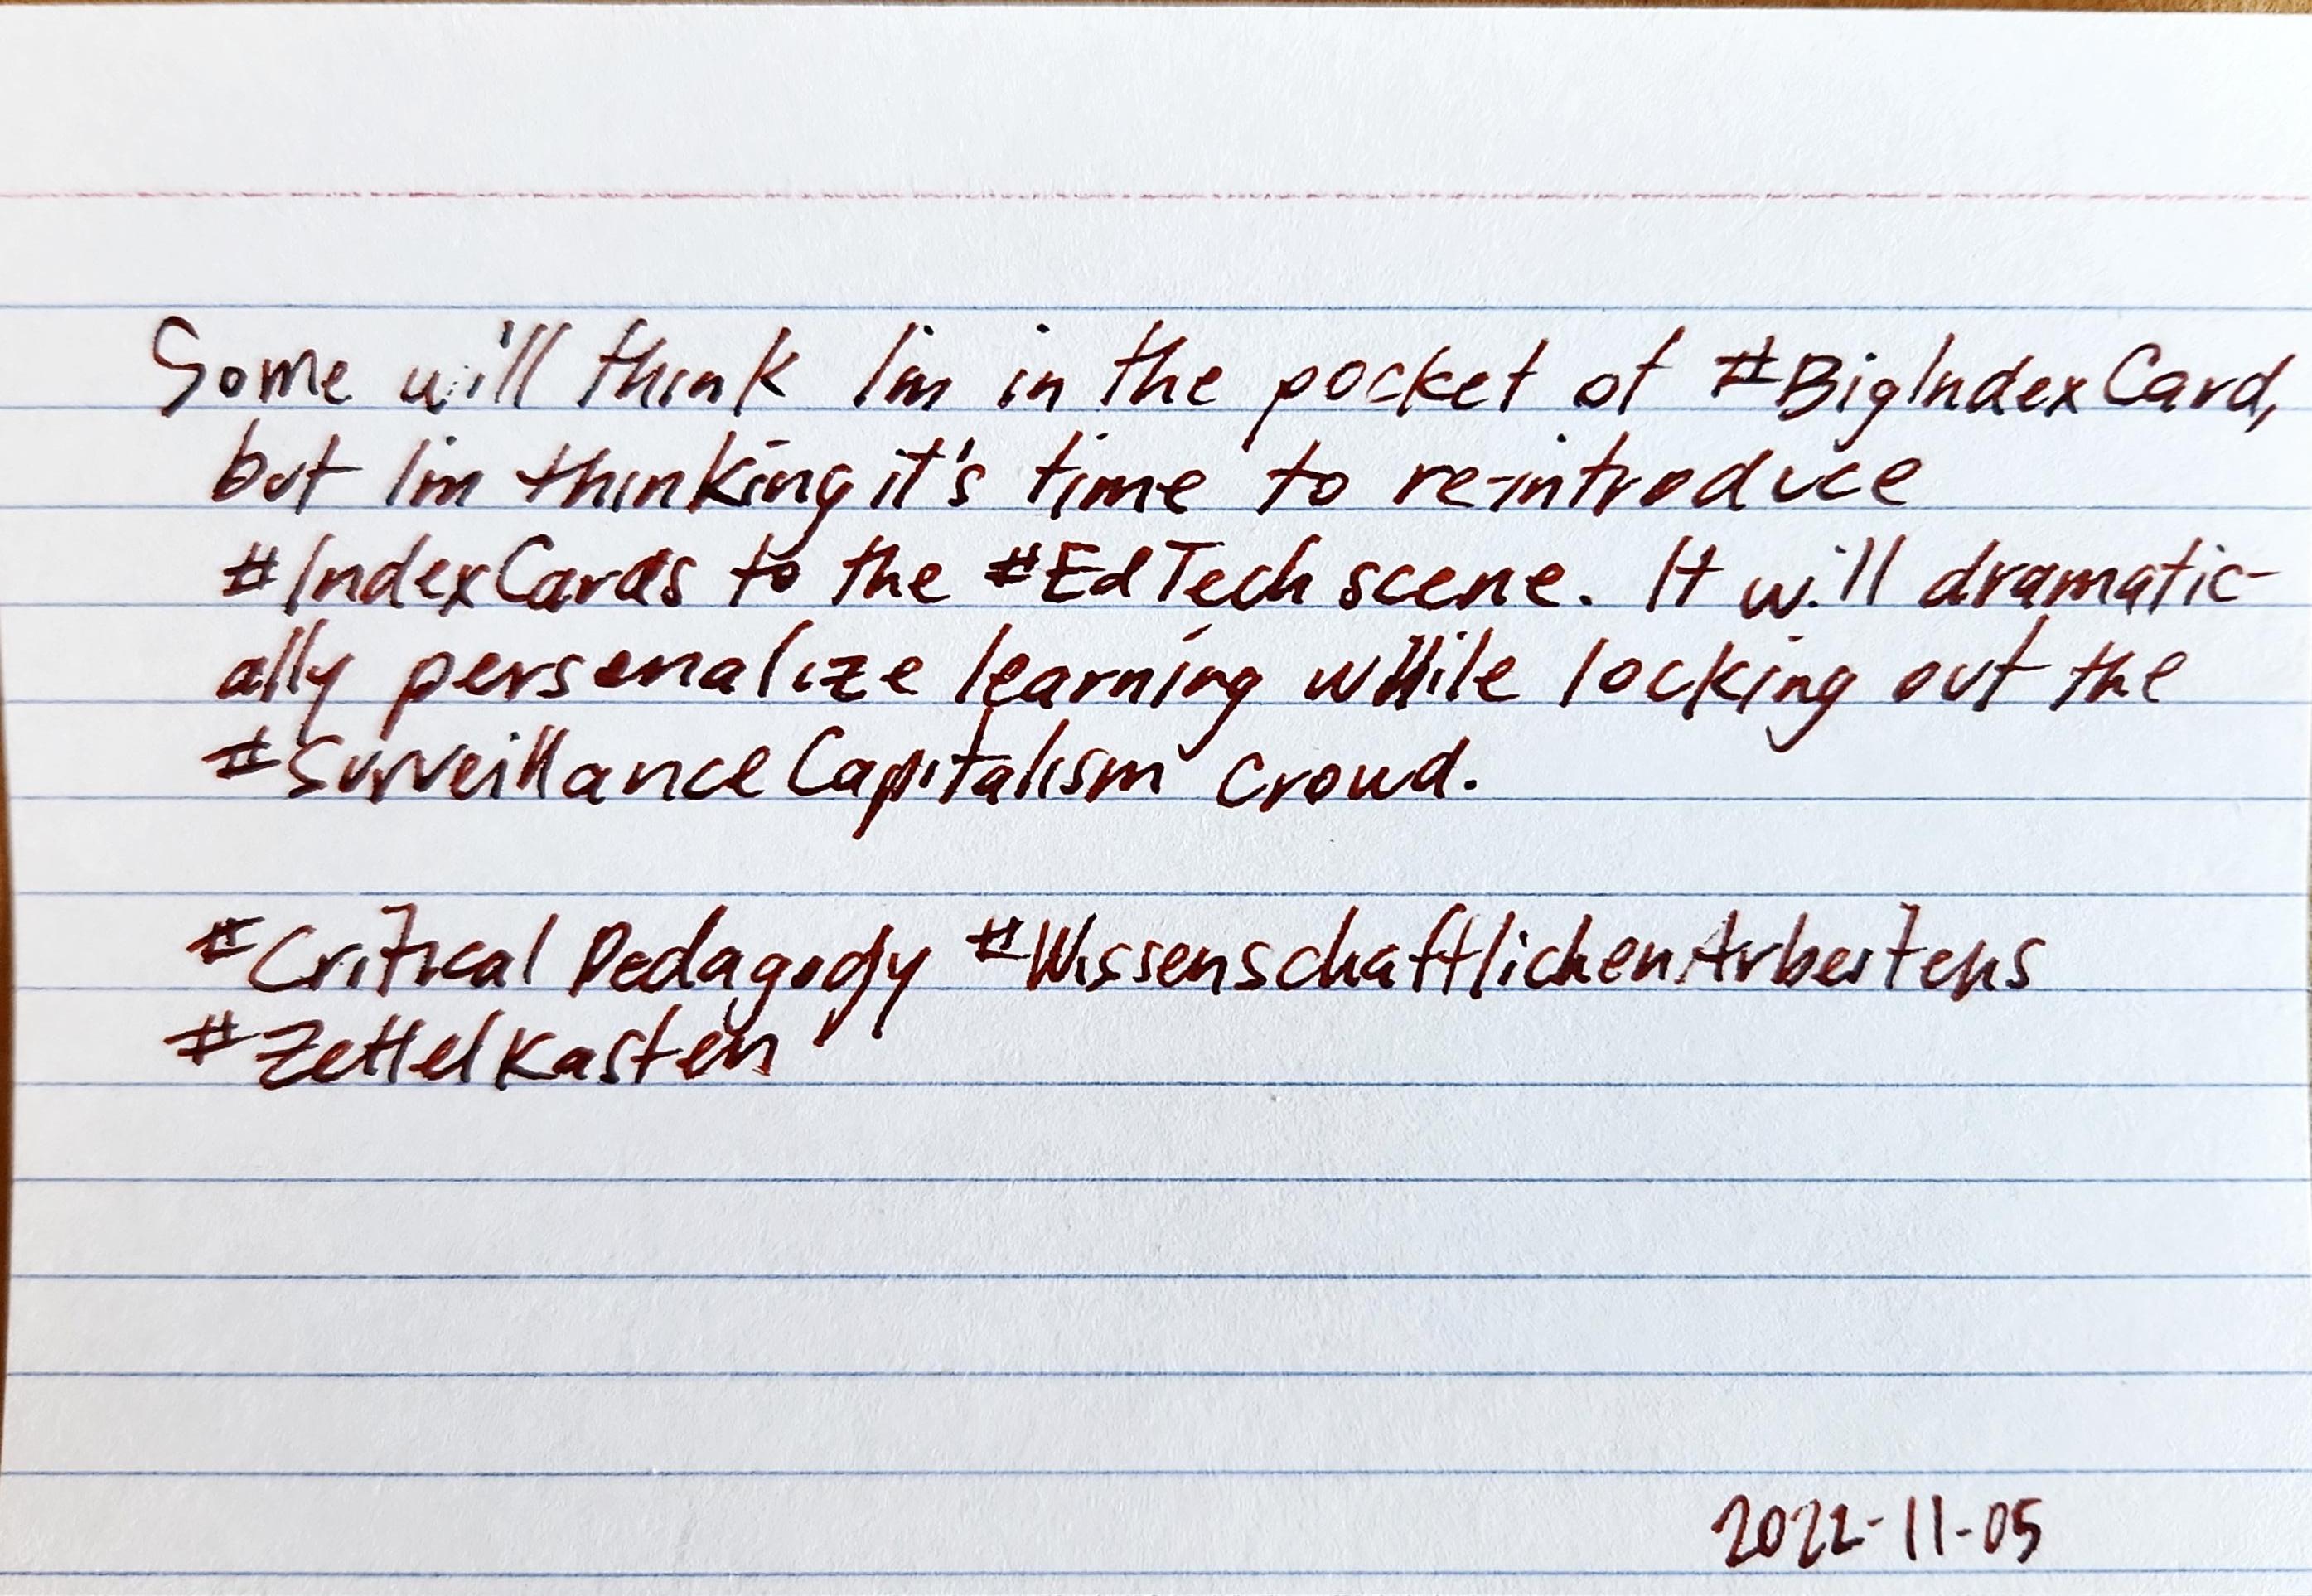 Some will think I'm in the pocket of #BigIndexCard,
but I'm thinking it's time to re-introduce
#IndexCards to the #EdTech scene. It will dramatic-
ally personalize learning while locking out the
#SurveillanceCapitalism crowd.
#CriticalPedagogy #WissenschaftlichenArbeitens
#Zettelkasten
2022-11-05